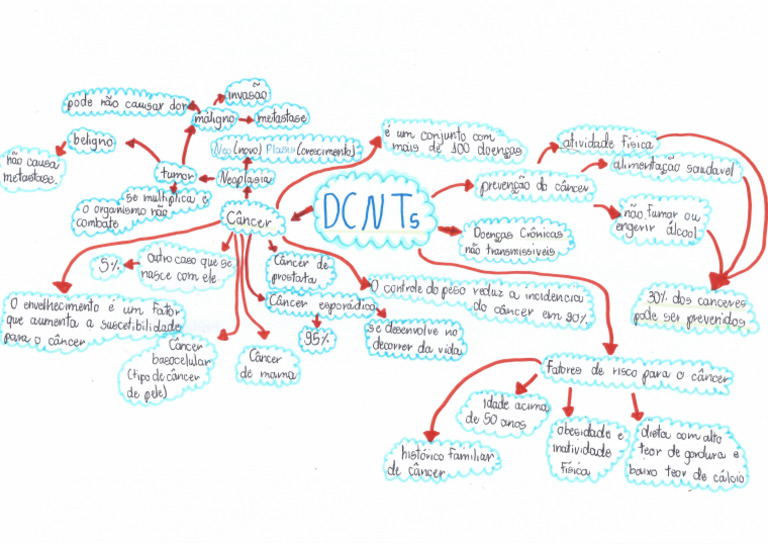 invasão
pode não causar dor
maligno
metastase
beligno
Neo(novo) Plasia(crescimento)
não causa
metastase.
tumor
Neoplasia
se multiplica e
o organismo não
combate
Câncer
DCNTs
é um conjunto com
mais de 100 doenças
atividade física
alimentação saudavel
prevenção do câncer
não fumar ou
engerir álcool
Doenças Crônicas
não transmissíveis
30% dos canceres
pode ser prevenidos
5%
Outro caso que se
nasce com ele
Câncer de
prostata
O controle do peso reduz a incidencia
do câncer em 90%.
Câncer esporádico
95%
se desenvolve no
decorrer da vida
O envelhecimento é um fator
que aumenta a suscetibilidade
para o câncer
Câncer
basocelular
(tipo de câncer
de pele)
Câncer
de mama
Fatores de risco para o câncer
idade acima
de 50 anos
histórico familiar
de câncer
obesidade e
inatividade
física
dieta com alto
teor de gordura e
baixo teor de cálcio